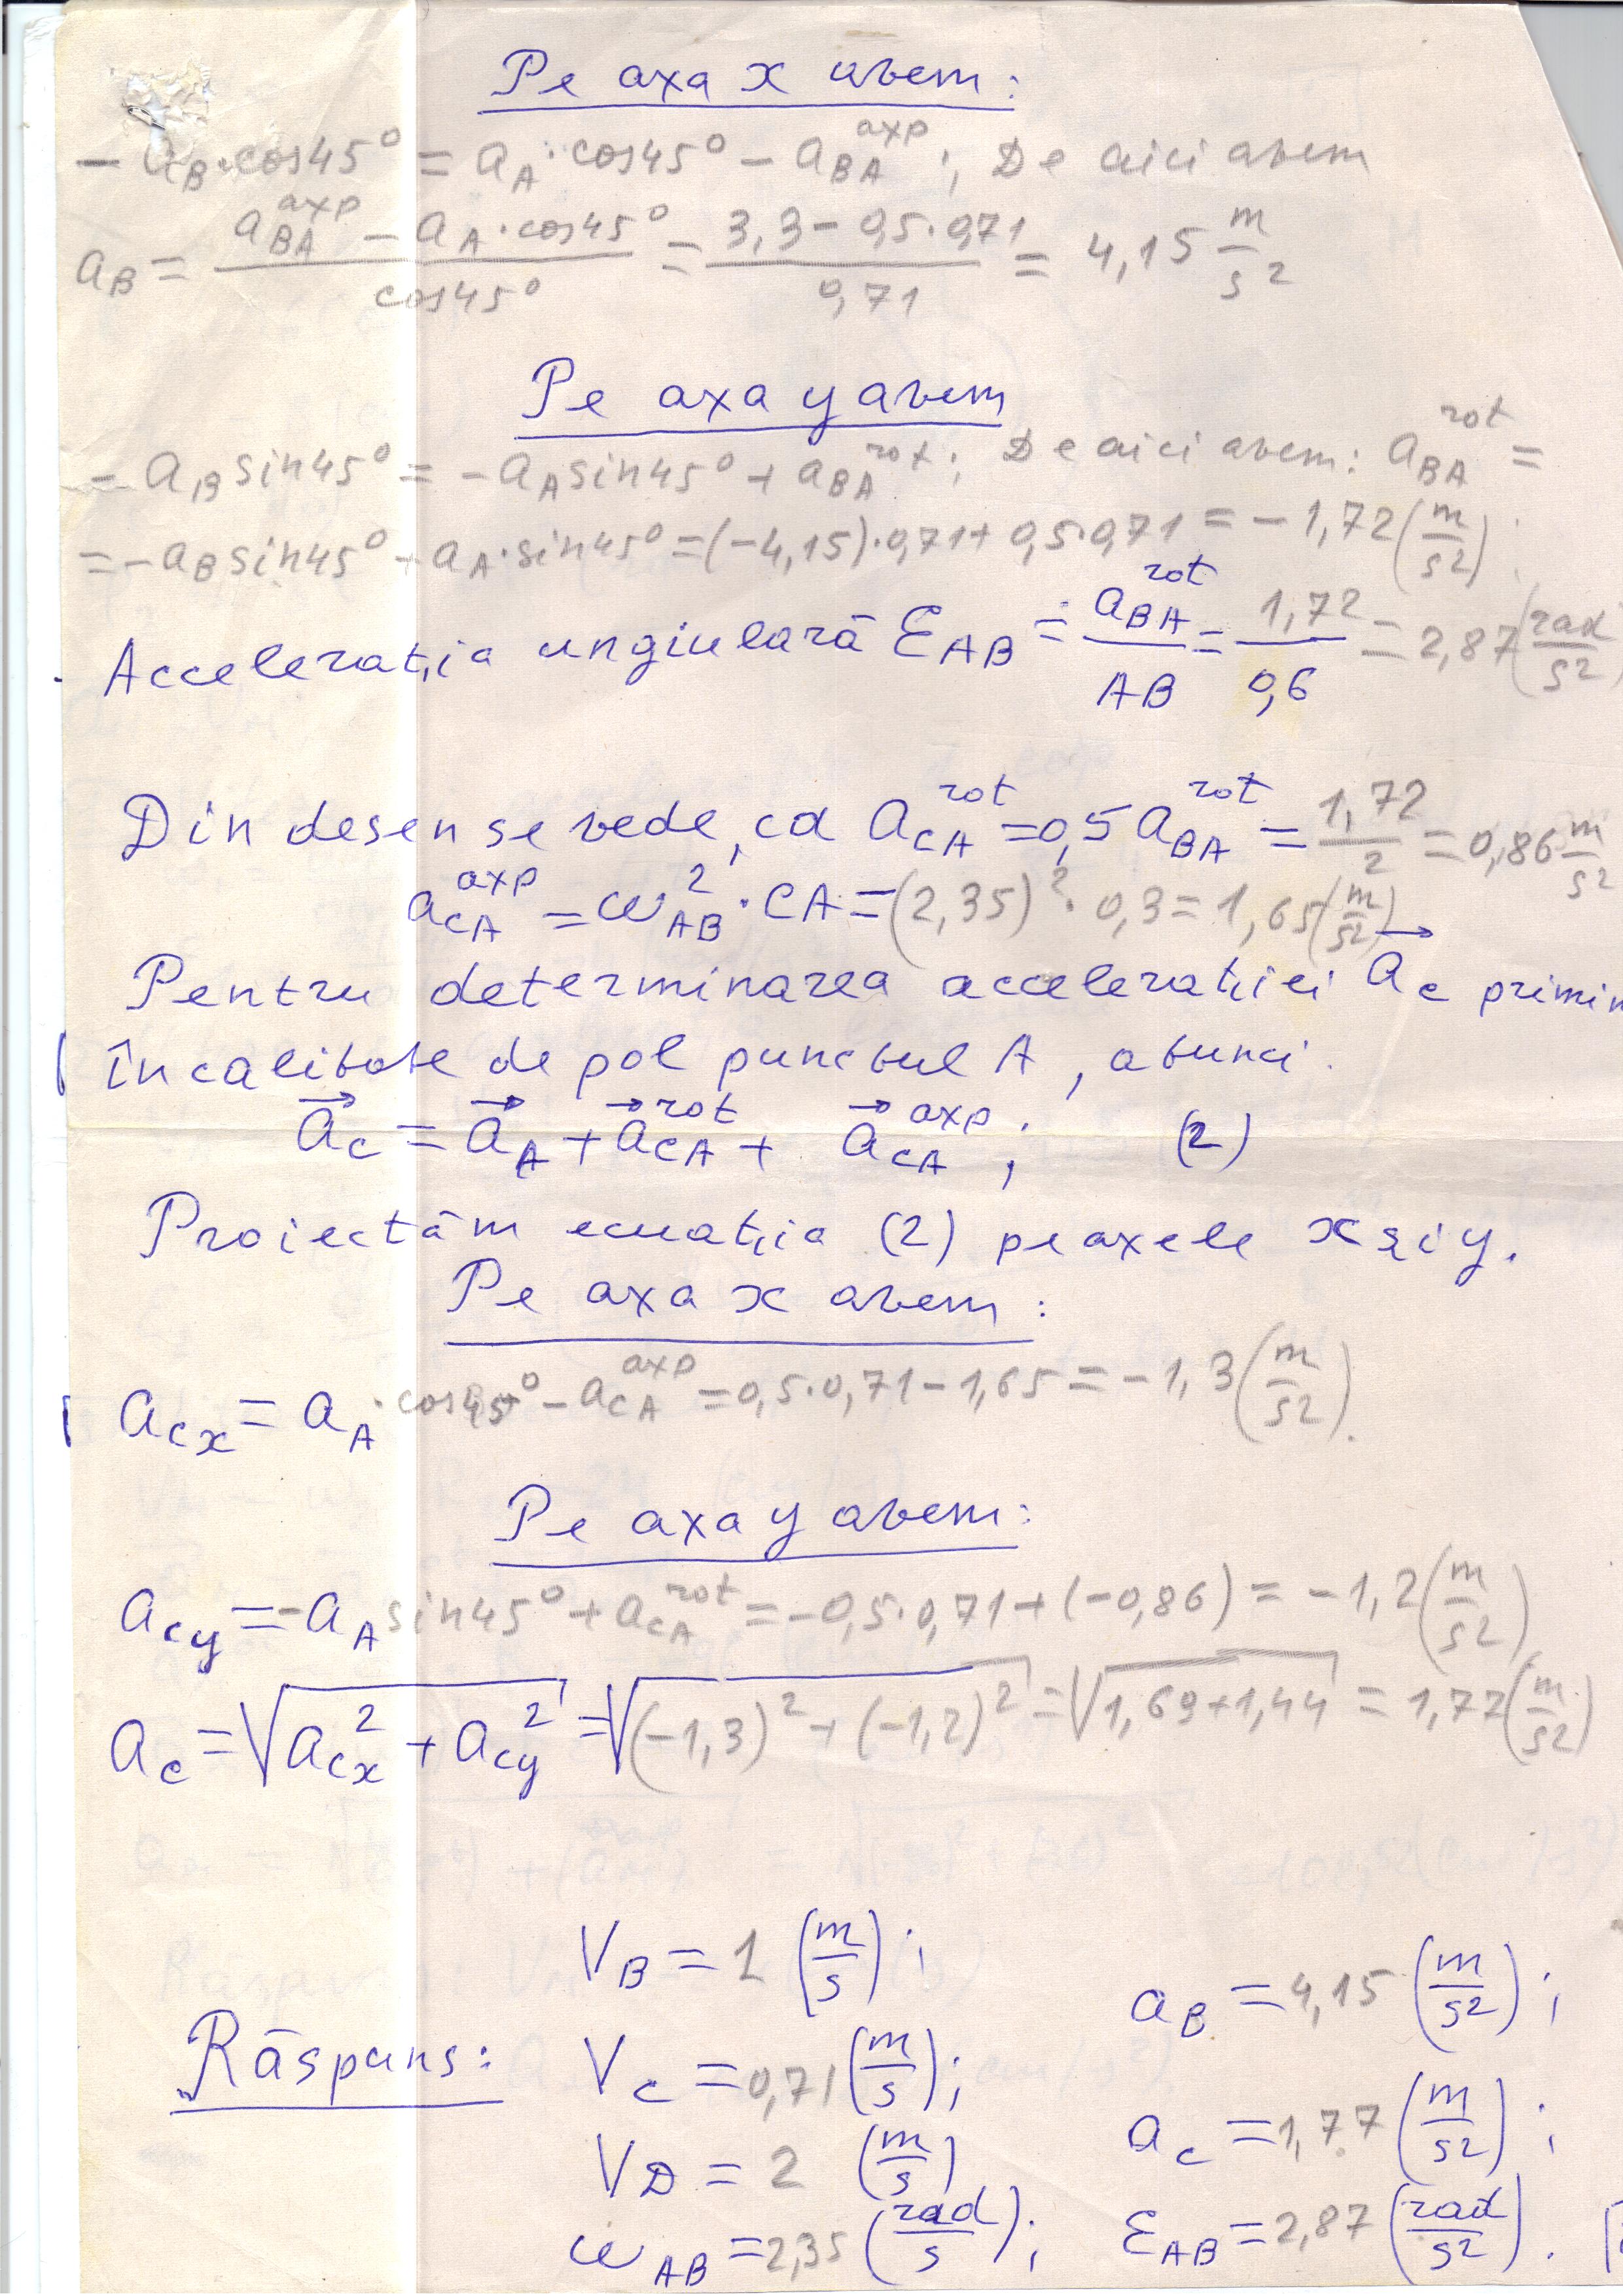 Pe axa x avem:
- aB·cos45° = aA·cos45° - aBA^axp; De aici avem
aB = (aBA^axp - aA·cos45°)/cos45° = (3,3 - 0,5·0,71)/0,71 = 4,15 m/s²
Pe axa y avem
- aB sin45° = -aA sin45° + aBA^rot; De aici avem: aBA^rot =
= -aB sin45° + aA·sin45° = (-4,15)·0,71 + 0,5·0,71 = -1,72 (m/s²);
Accelerația ungiulară εAB = aBA^rot/AB = 1,72/0,6 = 2,87 (rad/s²)
Din desen se vede, că aCA^rot = 0,5 aBA^rot = 1,72/2 = 0,86 m/s²
aCA^axp = ωAB²·CA = (2,35)²·0,3 = 1,65 (m/s²)
Pentru determinarea accelerației a⃗c primim
în calitate de pol punctul A, atunci.
a⃗c = a⃗A + a⃗CA^rot + a⃗CA^axp; (2)
Proiectăm ecuația (2) pe axele x și y.
Pe axa x avem:
acx = aA·cos45° - aCA^axp = 0,5·0,71 - 1,65 = -1,3 (m/s²).
Pe axa y avem:
acy = -aA sin45° + aCA^rot = -0,5·0,71 + (-0,86) = -1,2 (m/s²)
ac = √(acx² + acy²) = √((-1,3)² + (-1,2)²) = √(1,69+1,44) = 1,77 (m/s²)
VB = 1 (m/s); aB = 4,15 (m/s²);
Răspuns: Vc = 0,71 (m/s); ac = 1,77 (m/s²);
VD = 2 (m/s)
ωAB = 2,35 (rad/s); εAB = 2,87 (rad/s²).